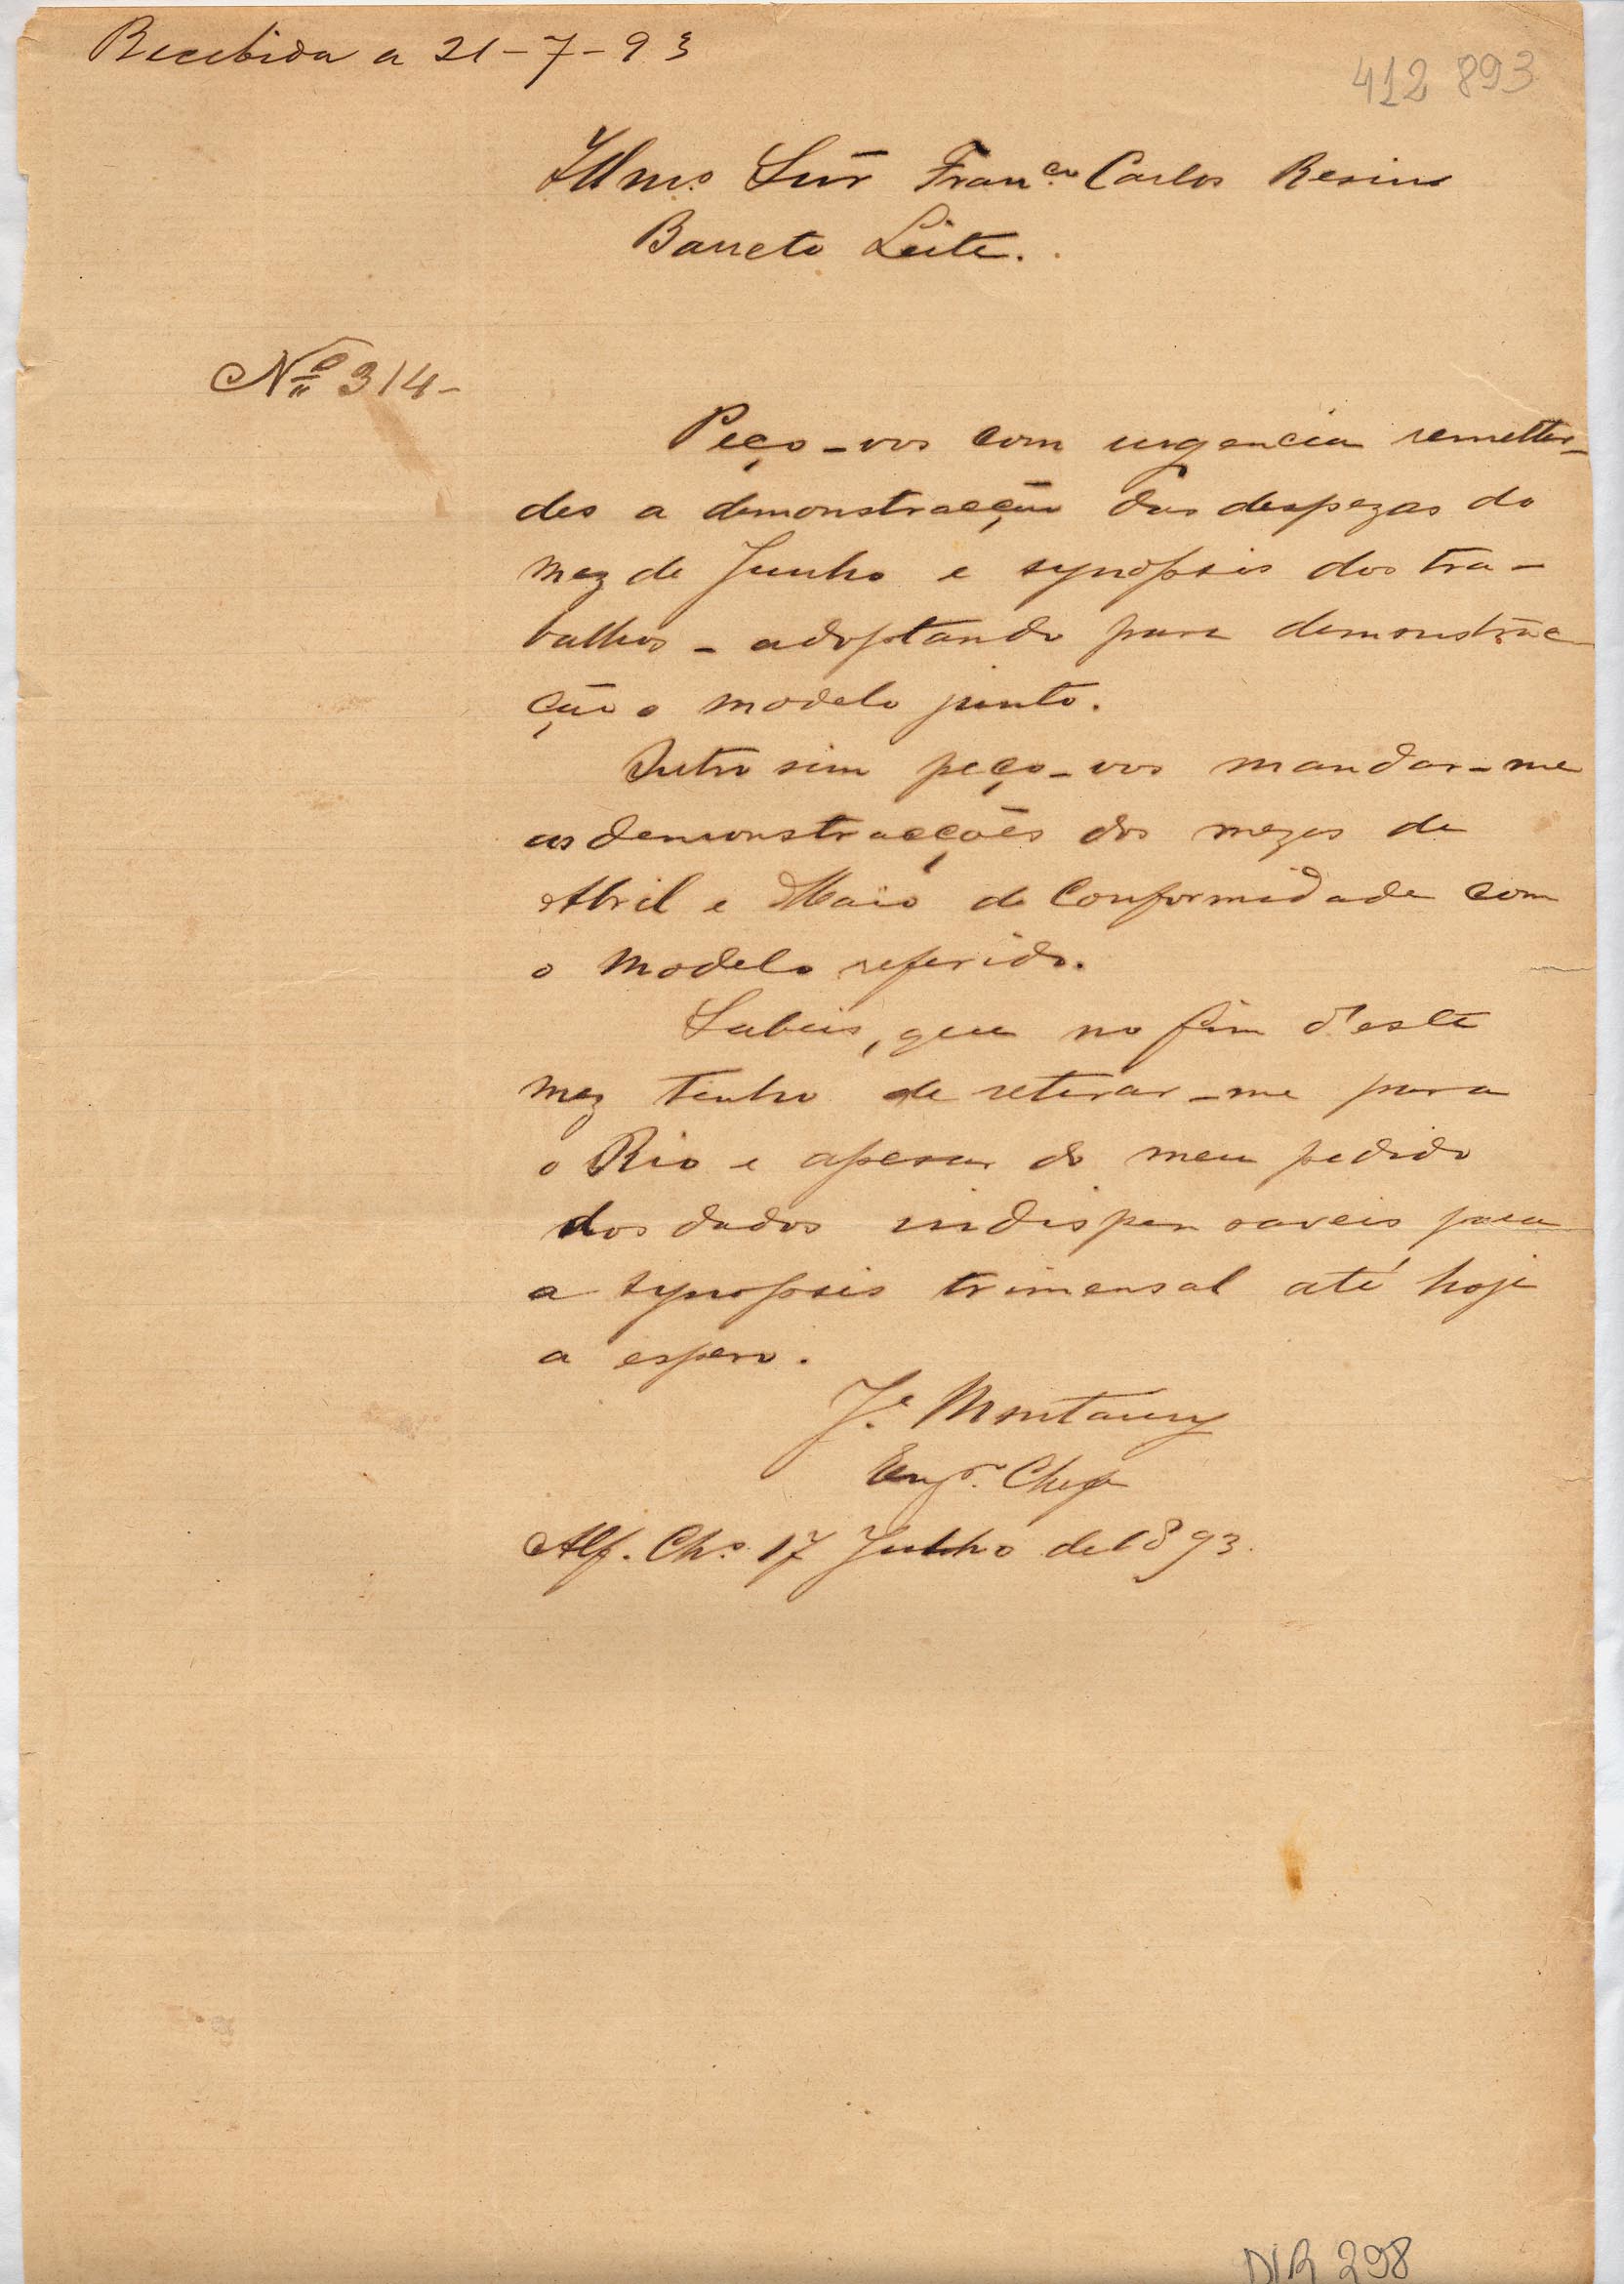 Recebida a 21-7-93
412 893
Illmº Snr Franco Carlos Resin
Barreto Leite.
Nº 314-
Peço-vos com urgencia remetter-
des a demonstracção das despezas do
mez de Junho e synopsis dos tra-
balhos - adoptando para demonstrac
ção o modelo junto.
Outro sim peço-vos mandar-me
as demonstracções dos mezes de
Abril e Maio de conformidade com
o modelo referido.
Sabeis, que no fim d'este
mez tenho de retirar-me para
o Rio e apesar do meu pedido
dos dados indispensaveis para
a synopsis trimensal até hoje
a espero.
Je. Montaury
Engro. Chefe
Alf. Chs. 17 Julho de 1893.
DIR 298